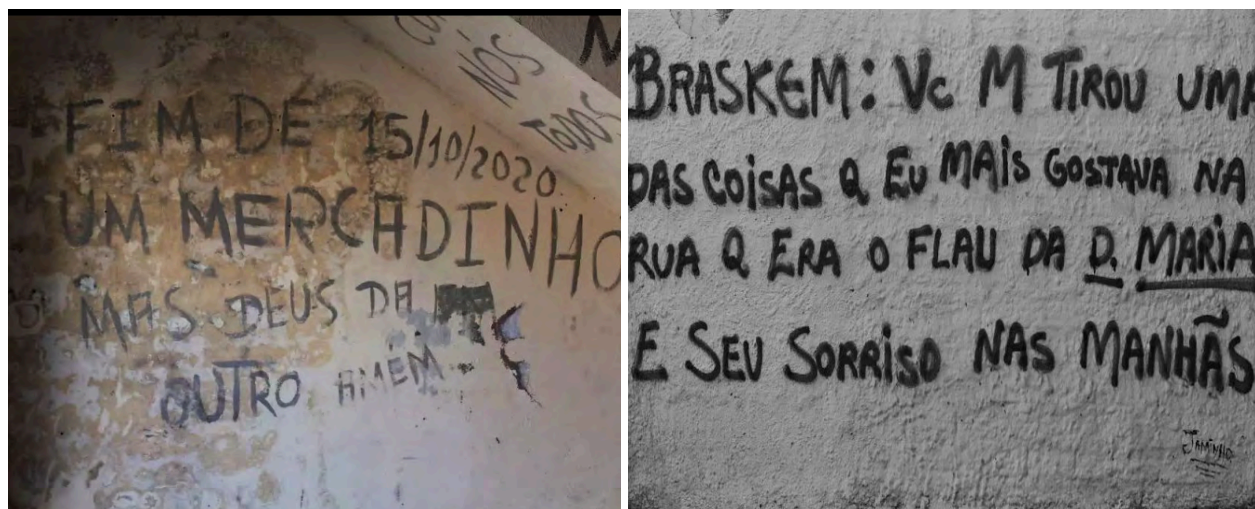 FIM DE 15/10/2020
UM MERCADINHO
MAS DEUS DA
OUTRO AMÉM
NÓS
TODOS
BRASKEM: Vc M TIROU UMA
DAS COISAS Q EU MAIS GOSTAVA NA
RUA Q ERA O FLAU DA D. MARIA
E SEU SORRISO NAS MANHÃS
JAMINHO